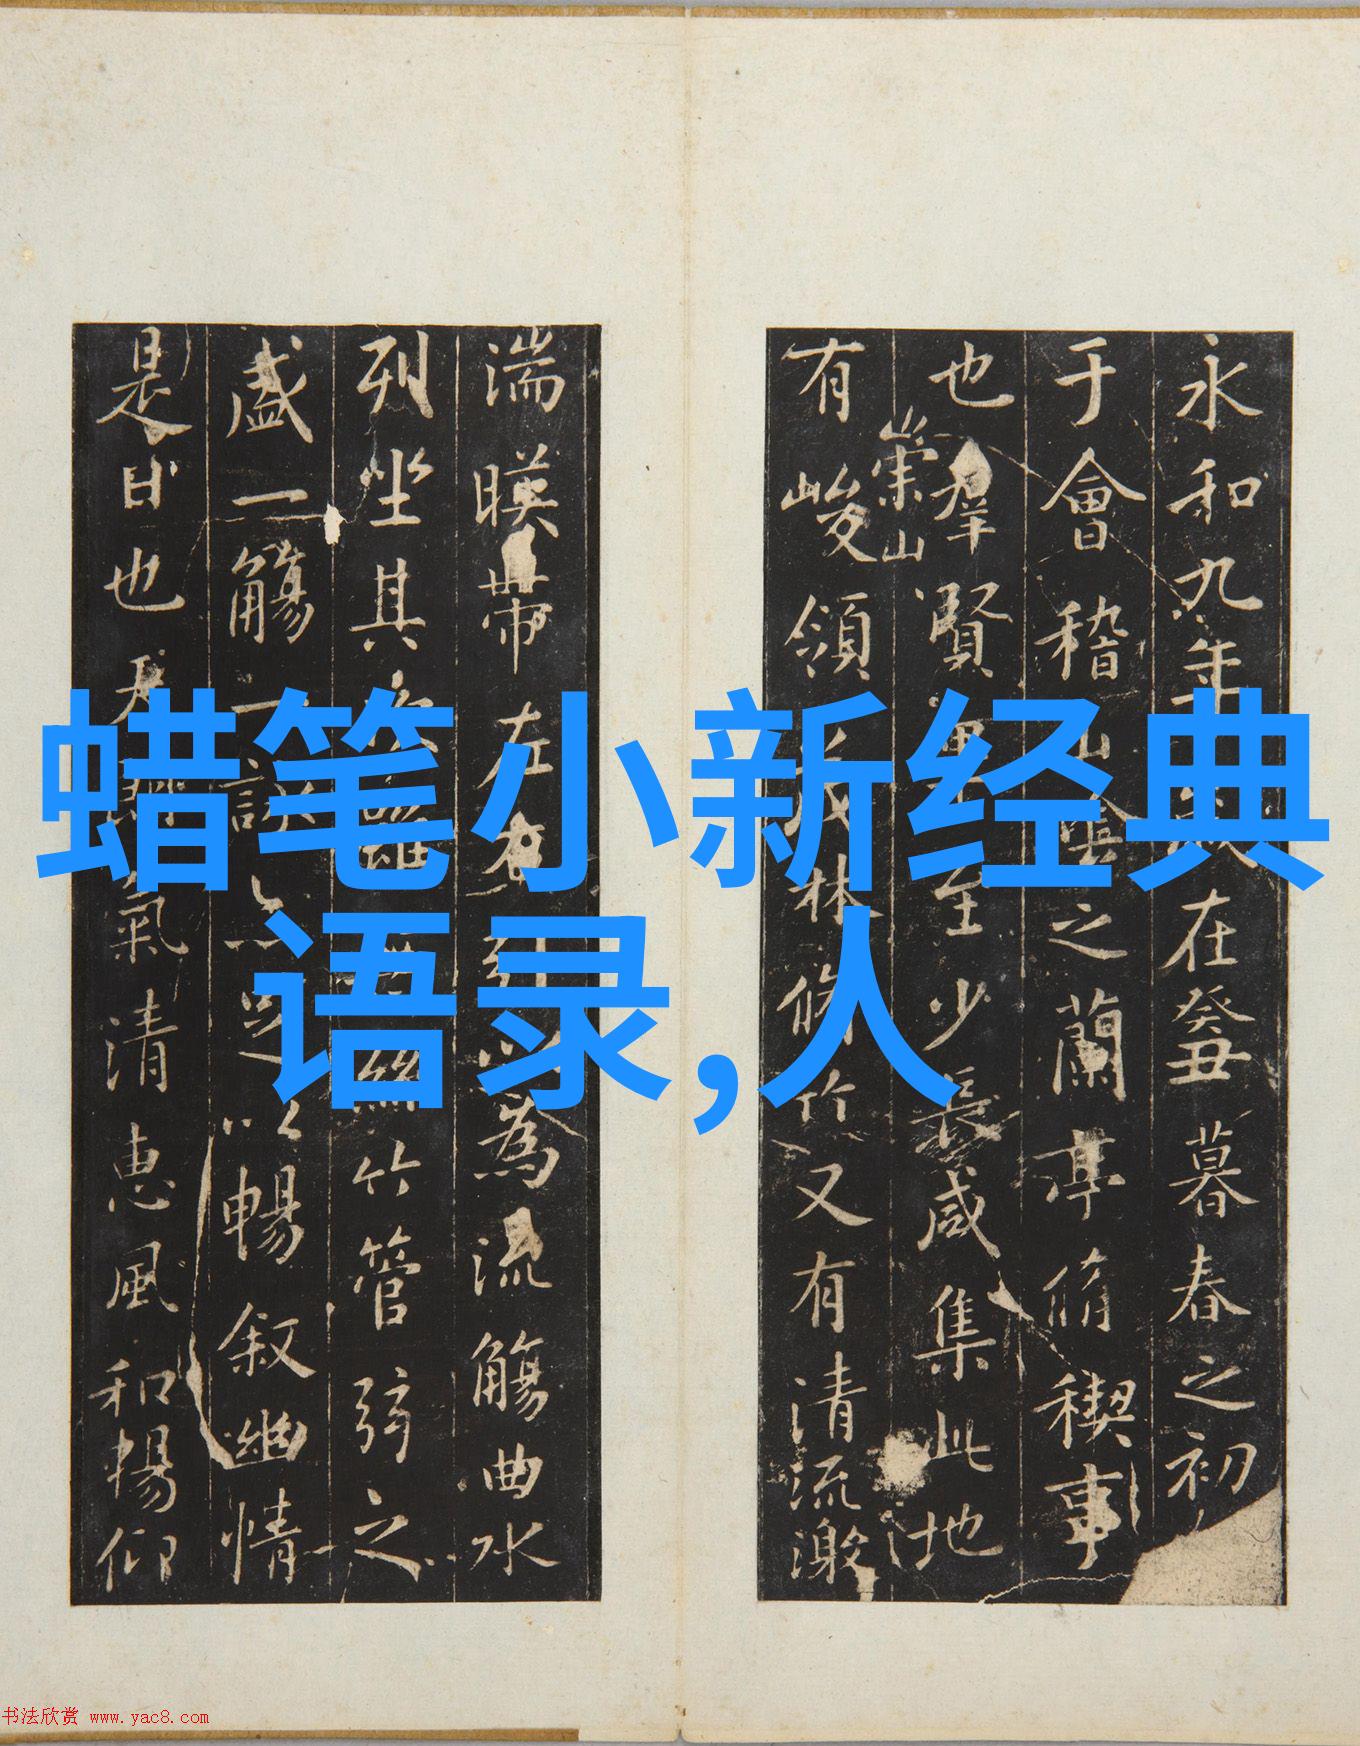 永和九年在癸丑暮春之初
于會稽山陰之蘭亭脩稧事
也羣賢至少長咸集此地
有崇山峻領茂林脩竹又有清流激
湍暎帶左右為流觴曲水
列坐其絲竹管弦之
盛一觴一詠以暢叙幽情
是日也天氣清惠風和暢仰
蜡笔小新经典
语录,人
书法欣赏 www.yac8.com